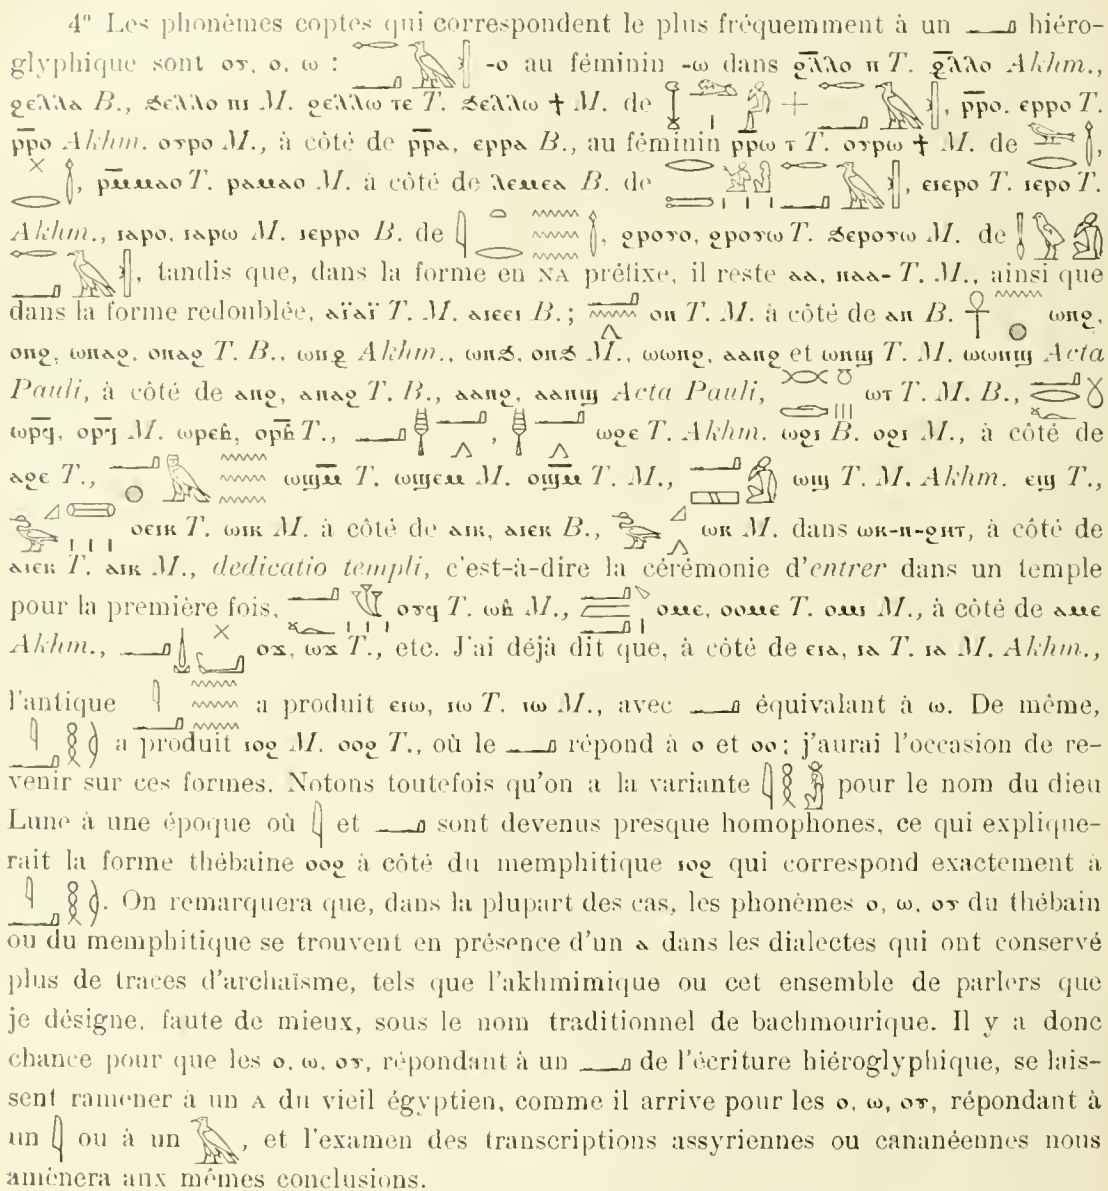 4° Les phonèmes coptes qui correspondent le plus fréquemment à un 𓂝 hiéro-
glyphique sont ⲟⲩ, ⲟ, ⲱ : 𓉻𓂝𓄿𓏛 -ⲟ au féminin -ⲱ dans ϩⲗ̅ⲗⲟ ⲡ T. ϩⲗ̅ⲗⲟ Akhm.,
ϩⲉⲗⲗⲁ B., ϧⲉⲗⲗⲟ ⲡⲓ M. ϩⲉⲗⲗⲱ ⲧⲉ T. ϧⲉⲗⲗⲱ ϯ M. de + , ⲣ̅ⲣⲟ. ⲉⲣⲣⲟ T.
ⲣ̅ⲣⲟ Akhm. ⲟⲩⲣⲟ M., à côté de ⲣ̅ⲣⲁ, ⲉⲣⲣⲁ B., au féminin ⲣ̅ⲣⲱ ⲧ T. ⲟⲩⲣⲱ ϯ M. de ,
, ⲣⲙ̅ⲙⲁⲟ T. ⲣⲁⲙⲁⲟ M. à côté de ⲗⲉⲙⲉⲁ B. de , ⲉⲓⲉⲣⲟ T. ⲓⲉⲣⲟ T.
Akhm., ⲓⲁⲣⲟ, ⲓⲁⲣⲱ M. ⲓⲉⲣⲣⲟ B. de , ϩⲣⲟⲩⲟ, ϩⲣⲟⲩⲱ T. ϧⲉⲣⲟⲩⲱ M. de
, tandis que, dans la forme en NA préfixe, il reste ⲁⲁ, ⲛⲁⲁ- T. M., ainsi que
dans la forme redoublée, ⲁⲓ̈ⲁⲓ̈ T. M. ⲁⲓⲉⲉⲓ B. ; ⲟⲛ T. M. à côté de ⲁⲛ B. 𓋹𓈖𓐍 ⲱⲛϩ,
ⲟⲛϩ, ⲱⲛⲁϩ, ⲟⲛⲁϩ T. B., ⲱⲛϩ Akhm., ⲱⲛϧ, ⲟⲛϧ M., ⲱⲱⲛϩ, ⲁⲁⲛϩ et ⲱⲛϣ T. M. ⲱⲱⲛϣ Acta
Pauli, à côté de ⲁⲛϩ, ⲁⲛⲁϩ T. B., ⲁⲁⲛϩ, ⲁⲁⲛϣ Acta Pauli, ⲱⲧ T. M. B.,
ⲱⲣϥ̅, ⲟⲣϥ̅ M. ⲱⲣⲉⲃ, ⲟⲣⲃ̅ T., , ⲱϩⲉ T. Akhm. ⲱϩⲓ B. ⲟϩⲓ M., à côté de
ⲁϩⲉ T., ⲱϣⲙ̅ T. ⲱϣⲉⲙ M. ⲟϣⲙ̅ T. M., ⲱϣ T. M. Akhm. ⲉϣ T.,
ⲟⲉⲓⲕ T. ⲱⲓⲕ M. à côté de ⲁⲓⲕ, ⲁⲓⲉⲕ B., ⲱⲕ M. dans ⲱⲕ-ⲛ-ϩⲏⲧ, à côté de
ⲁⲓⲉⲕ T. ⲁⲓⲕ M., dedicatio templi, c'est-à-dire la cérémonie d'entrer dans un temple
pour la première fois, ⲟⲩϥ T. ⲱⲃ M., ⲟⲙⲉ, ⲟⲟⲙⲉ T. ⲟⲙⲓ M., à côté de ⲁⲙⲉ
Akhm., ⲟϫ, ⲱϫ T., etc. J'ai déjà dit que, à côté de ⲉⲓⲁ, ⲓⲁ T. ⲓⲁ M. Akhm.,
l'antique 𓇋𓂝𓈗 a produit ⲉⲓⲱ, ⲓⲱ T. ⲓⲱ M., avec 𓂝 équivalant à ⲱ. De même,
𓇋𓂝𓎛 a produit ⲓⲟϩ M. ⲟⲟϩ T., où le 𓂝 répond à ⲟ et ⲟⲟ ; j'aurai l'occasion de re-
venir sur ces formes. Notons toutefois qu'on a la variante 𓇋𓎛 pour le nom du dieu
Lune à une époque où 𓇋 et 𓂝 sont devenus presque homophones, ce qui explique-
rait la forme thébaine ⲟⲟϩ à côté du memphitique ⲓⲟϩ qui correspond exactement à
𓇋𓂝𓎛. On remarquera que, dans la plupart des cas, les phonèmes ⲟ, ⲱ, ⲟⲩ du thébain
ou du memphitique se trouvent en présence d'un ⲁ dans les dialectes qui ont conservé
plus de traces d'archaïsme, tels que l'akhmimique ou cet ensemble de parlers que
je désigne, faute de mieux, sous le nom traditionnel de bachmourique. Il y a donc
chance pour que les ⲟ, ⲱ, ⲟⲩ, répondant à un 𓂝 de l'écriture hiéroglyphique, se lais-
sent ramener à un A du vieil égyptien, comme il arrive pour les ⲟ, ⲱ, ⲟⲩ, répondant à
un 𓇋 ou à un 𓄿, et l'examen des transcriptions assyriennes ou cananéennes nous
amènera aux mêmes conclusions.